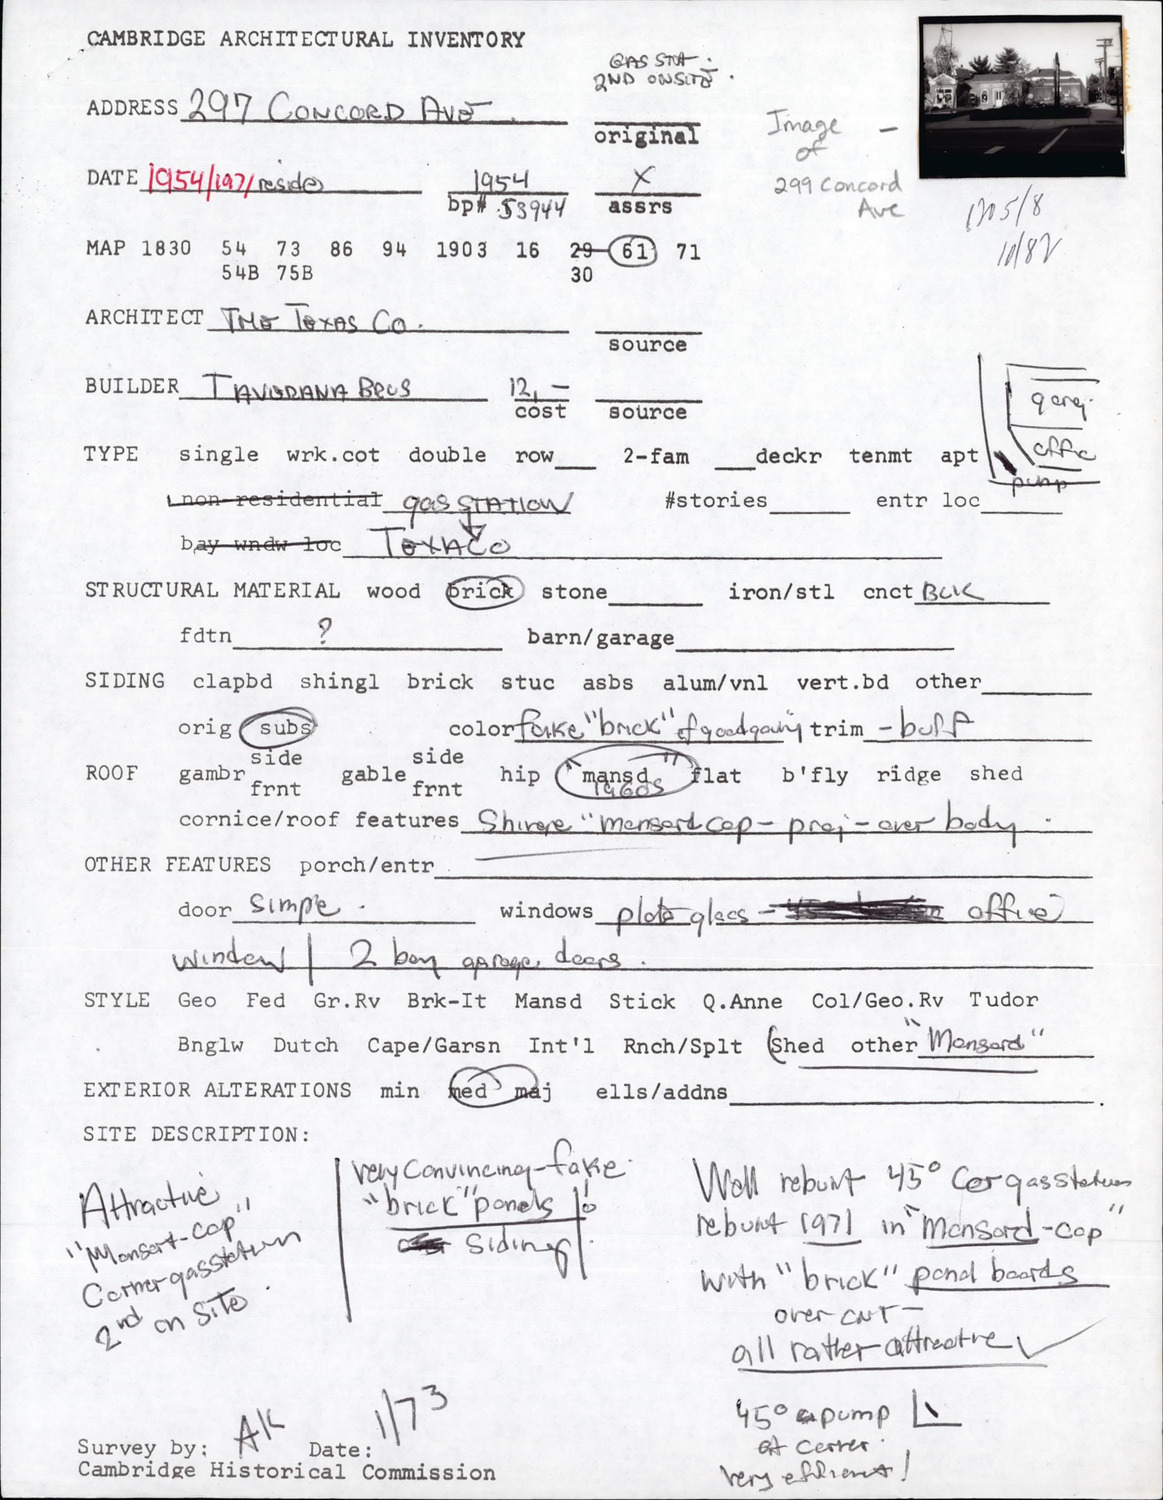 CAMBRIDGE ARCHITECTURAL INVENTORY
GAS STAT.
2ND ONSITE.
ADDRESS 297 CONCORD AVE.
original
Image
of
299 Concord
Ave
1205/8
10/82
DATE 1954/1971/reside 1954 X
bp# 53944 assrs
MAP 1830 54 73 86 94 1903 16 29 61 71
54B 75B 30
ARCHITECT THE TEXAS Co.
source
BUILDER BROS 12,—
cost source
garg.
office
pump
TYPE single wrk.cot double row 2-fam deckr tenmt apt
non-residential gas STATION #stories entr loc
bay wndw loc TEXACO
STRUCTURAL MATERIAL wood brick stone iron/stl cnct BLK
fdtn ? barn/garage
SIDING clapbd shingl brick stuc asbs alum/vnl vert.bd other
orig subs color fake "brick" of good quality trim - buff
side side
ROOF gambr gable hip "mansd" flat b'fly ridge shed
frnt frnt 1960s
cornice/roof features "Mansard cap - proj - over body.
OTHER FEATURES porch/entr
door Simple. windows plate glass - office
window | 2 bay garage doors.
STYLE Geo Fed Gr.Rv Brk-It Mansd Stick Q.Anne Col/Geo.Rv Tudor
Bnglw Dutch Cape/Garsn Int'l Rnch/Splt Shed other "Mansard"
EXTERIOR ALTERATIONS min med maj ells/addns
SITE DESCRIPTION:
Attractive
"Mansart-cap"
Corner gasstation
2nd on Site.
very Convincing-fake
"brick" panels !
Siding!
Well rebuilt 45° Cor gasstation
rebuilt 1971 in "Mansard-cap"
with "brick" panel boards
over CNT -
all rather attractive ✓
45° pump
at corner.
very efficient!
Survey by: AK Date: 1/73
Cambridge Historical Commission